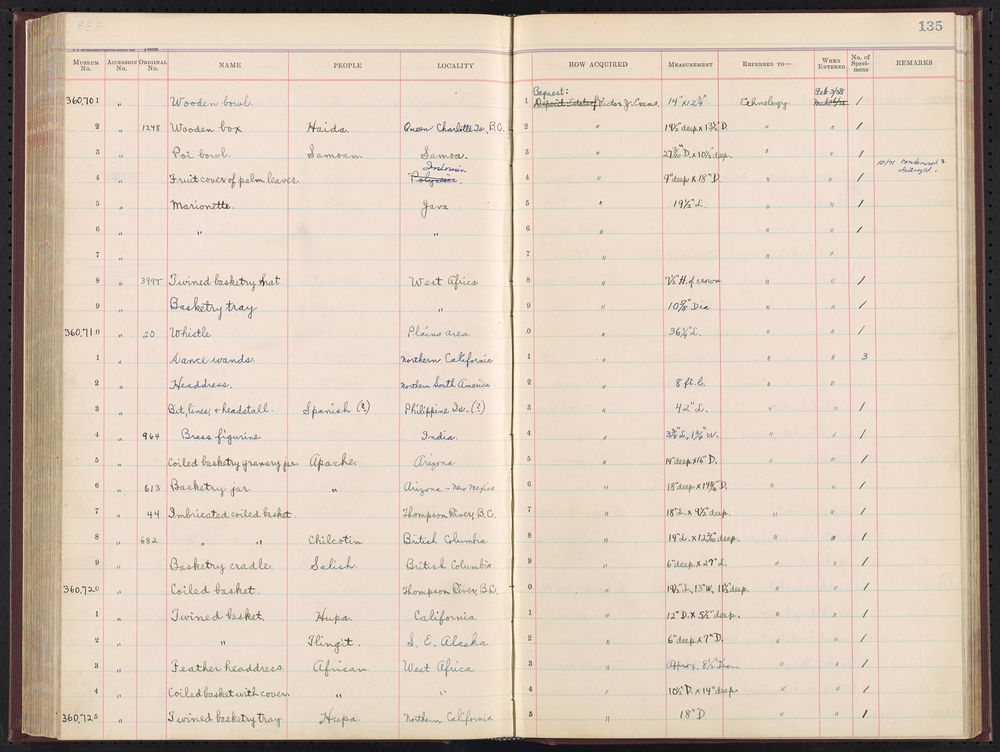 135
Museum No. Accession No. Original No. NAME PEOPLE LOCALITY HOW ACQUIRED Measurement Referred to— When Entered No. of Specimens REMARKS
Bequest: Feb 3/38
360,701 " Wooden bowl. 1 Victor J. Evans. 14" x 12¾" Ethnology 1
2 " 1248 Wooden box Haida. Queen Charlotte Is., B.C. 2 " 14½" deep x 13½" D. " " 1
3 " Poi bowl. Samoan. Samoa. 3 " D. x 10½" deep. " " 1
Indonesia 10/71 Condemned & destroyed.
4 " Fruit cover of palm leaves Polynesia. 4 " 9" deep x 18" D. " " 1
5 " Marionette. Java 5 " 19½" L. " " 1
6 " " " 6 " " " 1
7 " 7 " " "
8 " Twined basketry hat. West Africa 8 7½" H. of crown " " 1
9 " Basketry tray " 9 " Dia " " 1
360,710 " 20 Whistle Plains area 0 " 36¼" L. " " 1
1 " Dance wands. Northern California 1 " " " 3
2 " Headdress. Northern South America 2 " 8 ft. L. " "
3 " Bit, lines, & headstall. Spanish (?) Philippine Is. (?) 3 " 42" L. " " 1
4 " 964 Brass figurine India. 4 " 3¾" L., 1¾" W. " " 1
5 " Coiled basketry granary jar. Apache. Arizona 5 " 14" deep x 16" D. " " 1
6 " 613 Basketry jar " Arizona - New Mexico 6 " 18" deep x D. " " 1
7 " 44 Imbricated coiled basket. Thompson River, B.C. 7 " 18" L. x 9½" deep. " " 1
8 " 682 " " Chilcotin British Columbia 8 " 19" L. x deep. " " 1
9 " Basketry cradle. Salish. British Columbia 9 " 6" deep x 27" L. " " 1
360,720 " Coiled basket. Thompson River, B.C. 0 " 14½" L., 13" W., 11½" deep. " " 1
1 " Twined basket. Hupa. California 1 " 12" D. x 5½" deep. " " 1
2 " " Tlingit. S. E. Alaska 2 " 6" deep x 7" D. " " 1
3 " Feather headdress. African West Africa 3 " Approx. 8½" Diam " " 1
4 " Coiled basket with cover. " " 4 " 10½" D. x 14" deep. " " 1
360,725 " Twined basketry tray Hupa. Northern California 5 " 18" D. " " 1